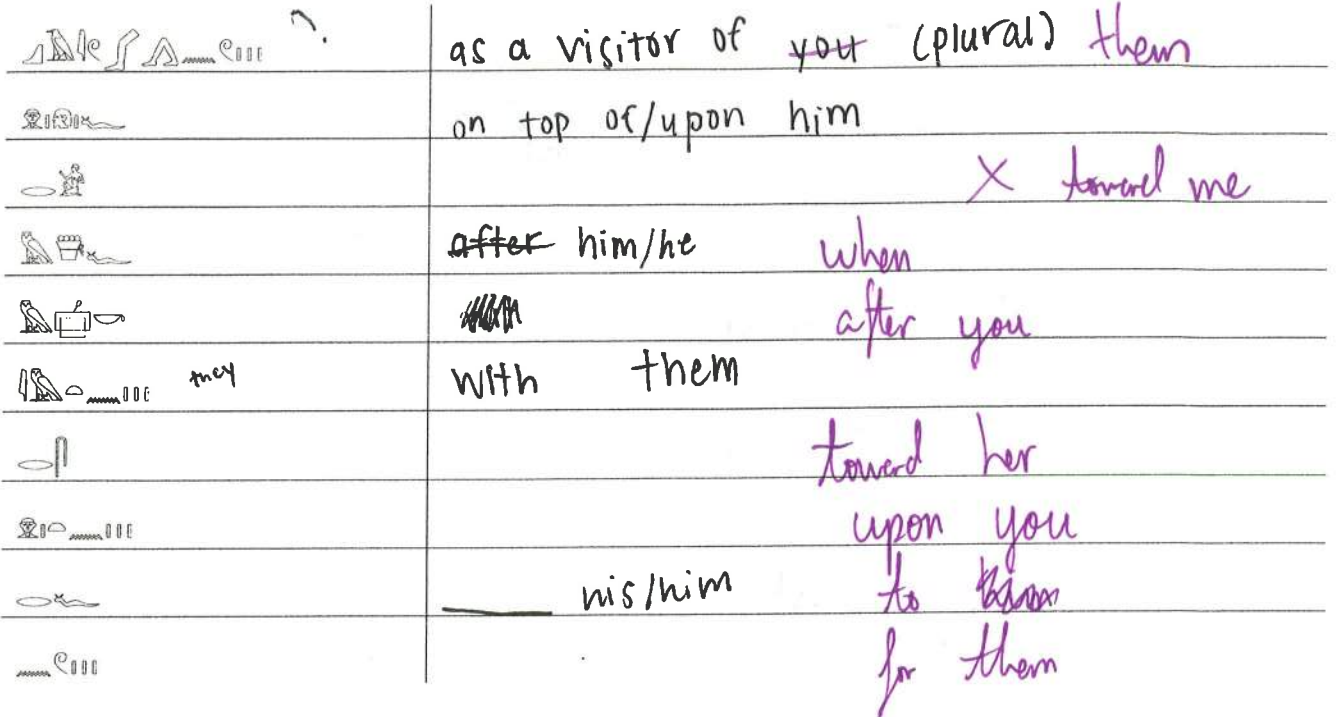 as a visitor of you (plural) them
𓁷𓏤𓁶𓏤𓆑 on top of/upon him
𓂋𓀀 X toward me
𓅓𓏃𓆑 after him/he when
after you
𓇋𓅓𓏏𓈖𓏥 they with them
𓂋𓋴 toward her
𓁷𓏤𓏏𓈖𓏥 upon you
𓂋𓆑 his/him to
𓈖𓏲𓏥 for them